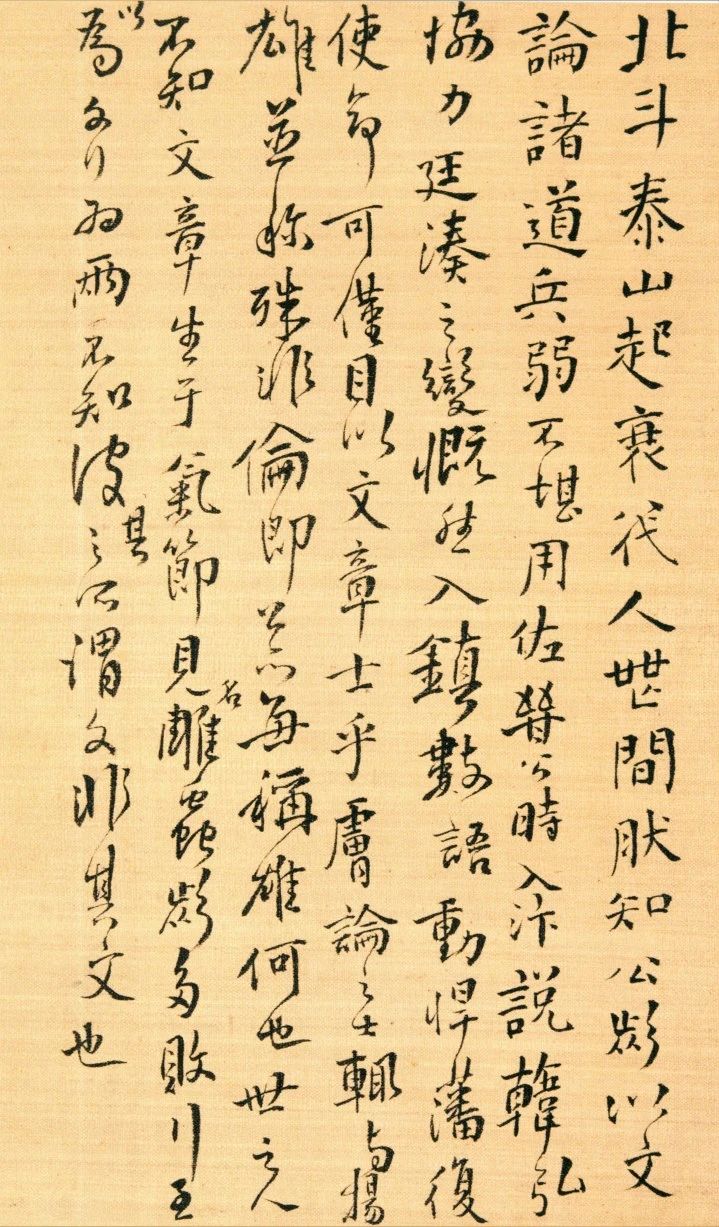 北斗泰山起衰代人世間肰知公㱕以文
論諸道兵弱不堪用佐晉公時入汴説韓弘
協力廷湊之變慨然入鎮數語動悍藩復
使命可僅目以文章士乎膚論之士輒与揚
雄並称殊非倫即荀無稱雄何也世之人
不知文章生于氣節見名雕蟲多敗行至
以爲文行爲兩不知彼其之所謂文非其文也